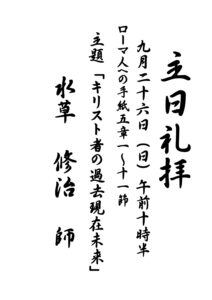 主日礼拝
九月二十六日（日）午前十時半
ローマ人への手紙五章一～十一節
主題「キリスト者の過去現在未来」
水草　修治　師